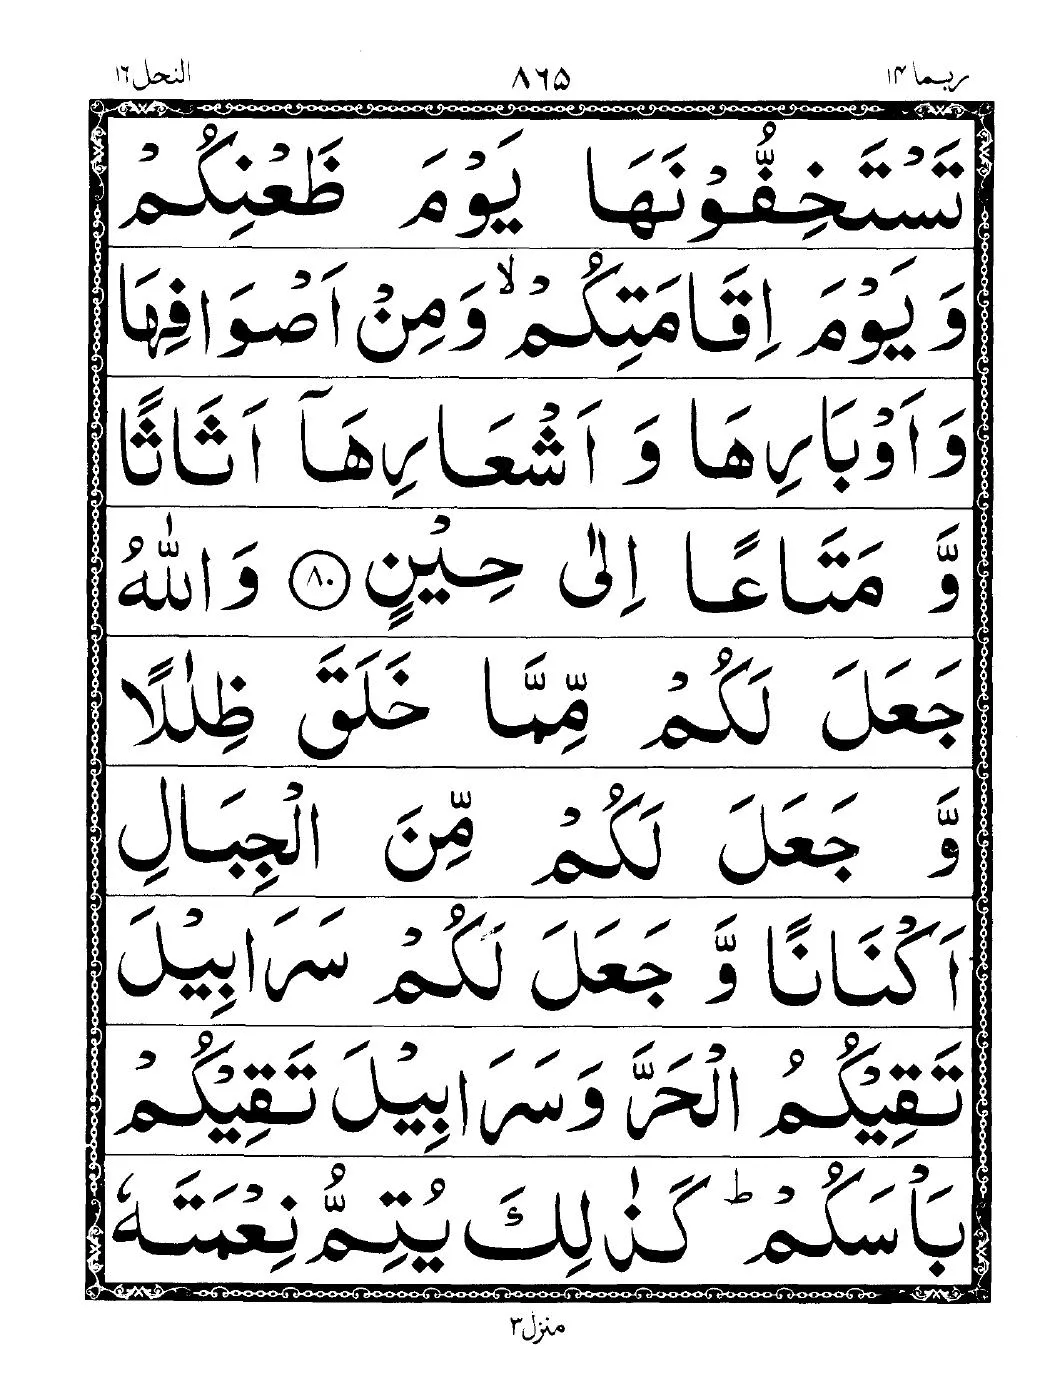 ربما ۱۴ ۸۶۵ النحل ۱۶
تَسْتَخِفُّوْنَهَا يَوْمَ ظَعْنِكُمْ
وَيَوْمَ اِقَامَتِكُمْ ۙ وَمِنْ اَصْوَافِهَا
وَاَوْبَارِهَا وَ اَشْعَارِهَآ اَثَاثًا
وَّ مَتَاعًا اِلٰى حِيْنٍ ﴿۸۰﴾ وَاللّٰهُ
جَعَلَ لَكُمْ مِّمَّا خَلَقَ ظِلٰلًا
وَّ جَعَلَ لَكُمْ مِّنَ الْجِبَالِ
اَكْنَانًا وَّ جَعَلَ لَكُمْ سَرَابِيْلَ
تَقِيْكُمُ الْحَرَّ وَسَرَابِيْلَ تَقِيْكُمْ
بَاْسَكُمْ ؕ كَذٰلِكَ يُتِمُّ نِعْمَتَهٗ
منزل ۳